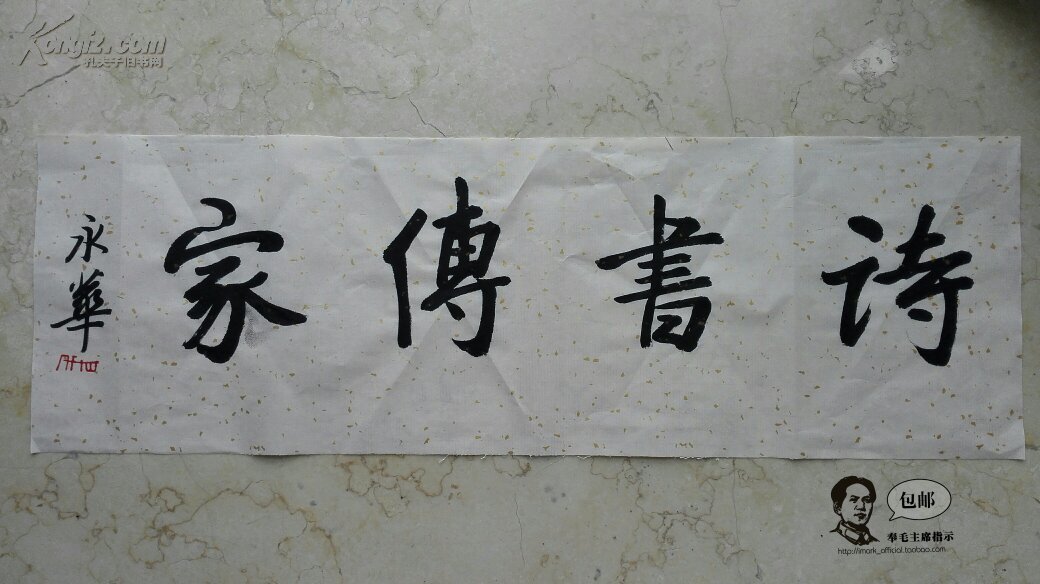 Kongfz.com
孔夫子旧书网
詩書傳家
永華
包邮
奉毛主席指示
http://imark_official.taobao.com